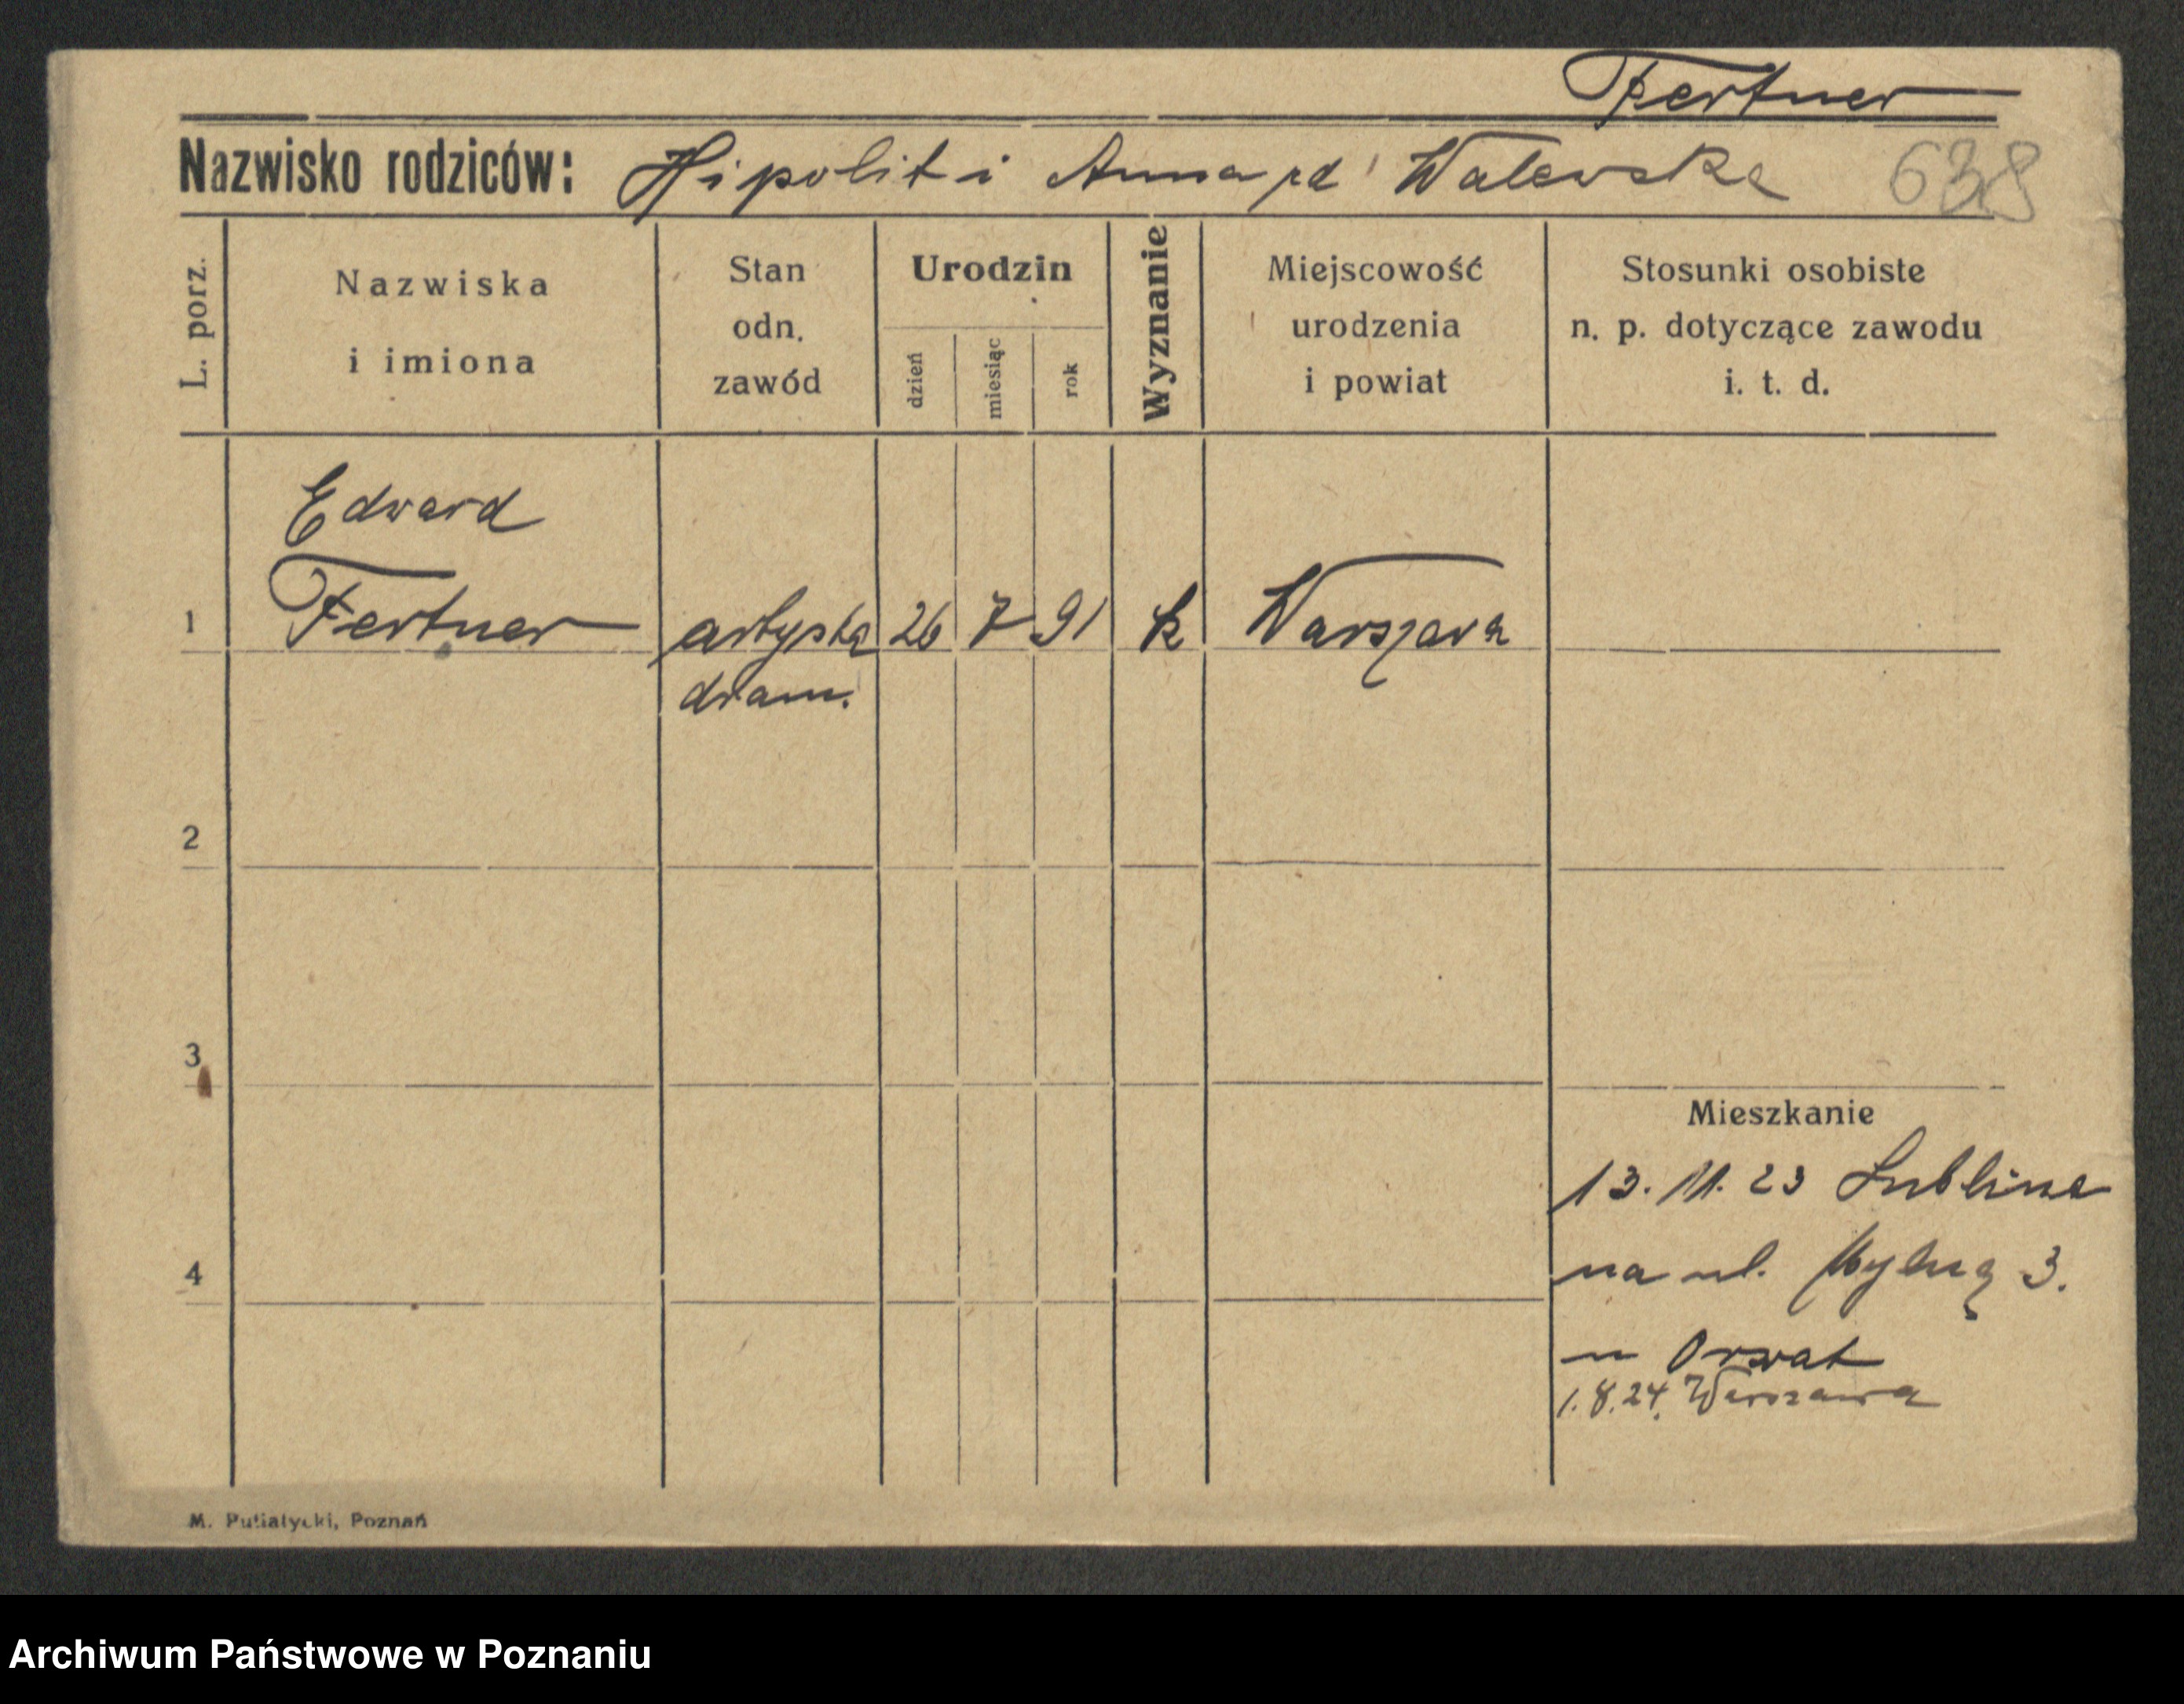 Fertner
Nazwisko rodziców: Hipolit i Anna rd Walewska 638
L. porz.
Nazwiska i imiona
Stan odn. zawód
Urodzin
dzień miesiąc rok
Wyznanie
Miejscowość urodzenia i powiat
Stosunki osobiste n. p. dotyczące zawodu i. t. d.
Edward
1 Fertner artysta 26 7 91 k Warszawa
dram.
2
3
Mieszkanie
13. 11. 23 Lublina
na ul. 3.
4
u Orwat
1.8.24. Warszawa
M. Putiatycki, Poznań
Archiwum Państwowe w Poznaniu